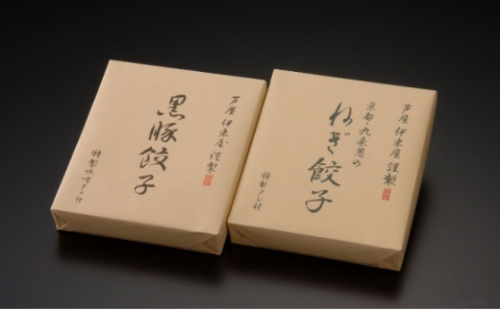 芦屋 伊東屋 謹製
黒豚餃子
特製味噌タレ付
芦屋 伊東屋 謹製
京都・九条葱の
ねぎ餃子
特製タレ付